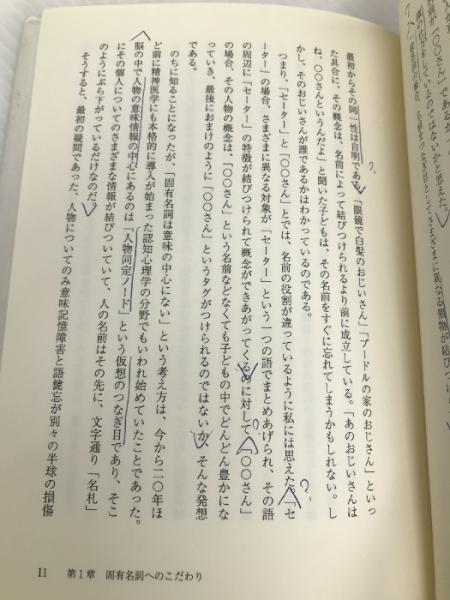 最初からその同一性は自明である。「眼鏡で白髪のおじいさん」「プードルの家のおじさん」といっ
た具合に、その概念は、名前によって結びつけられるより前に成立している。「あのおじいさんは
ね、〇〇さんというんだよ」と聞いた子どもは、その名前をすぐに忘れてしまうかもしれない。し
かし、そのおじいさんが誰であるかはわかっているのである。
つまり、「セーター」と「〇〇さん」とでは、名前の役割が違っているように私には思えた。「セ
ーター」の場合、さまざまに異なる対象が「セーター」という一つの語でまとめあげられ、その語
の周辺に「セーター」の特徴が結びつけられて概念ができあがってくるのに対して、「〇〇さん」
の場合、その人物の概念は、「〇〇さん」という名前などなくても子どもの中でどんどん豊かにな
っていき、最後におまけのように「〇〇さん」というタグがつけられるのではないか、そんな発想
である。
のちに知ることになったが、「固有名詞は意味の中心にない」という考え方は、今から二〇年ほ
ど前に精神医学にも本格的に導入が始まった認知心理学の分野でもいわれ始めていたことであった。
脳の中で人物の意味情報の中心にあるのは「人物同定ノード」という仮想のつなぎ目であり、そこ
にその個人についてのさまざまな情報が結びついていて、人の名前はその先に、文字通り「名札」
のようにぶら下がっているだけなのだ。
そうすると、最初の疑問であった、人物についてのみ意味記憶障害と語健忘が別々の半球の損傷
11 第1章 固有名詞へのこだわり